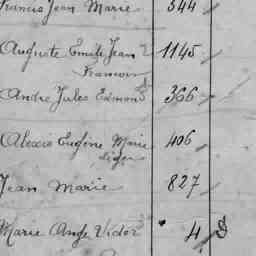 Francis Jean Marie 544
Auguste Emile Jean 1145
Francois
Andre Jules Edmond 366
Alexis Eugène Marie 406
Jean Marie 827
Marie Ange Victor 4